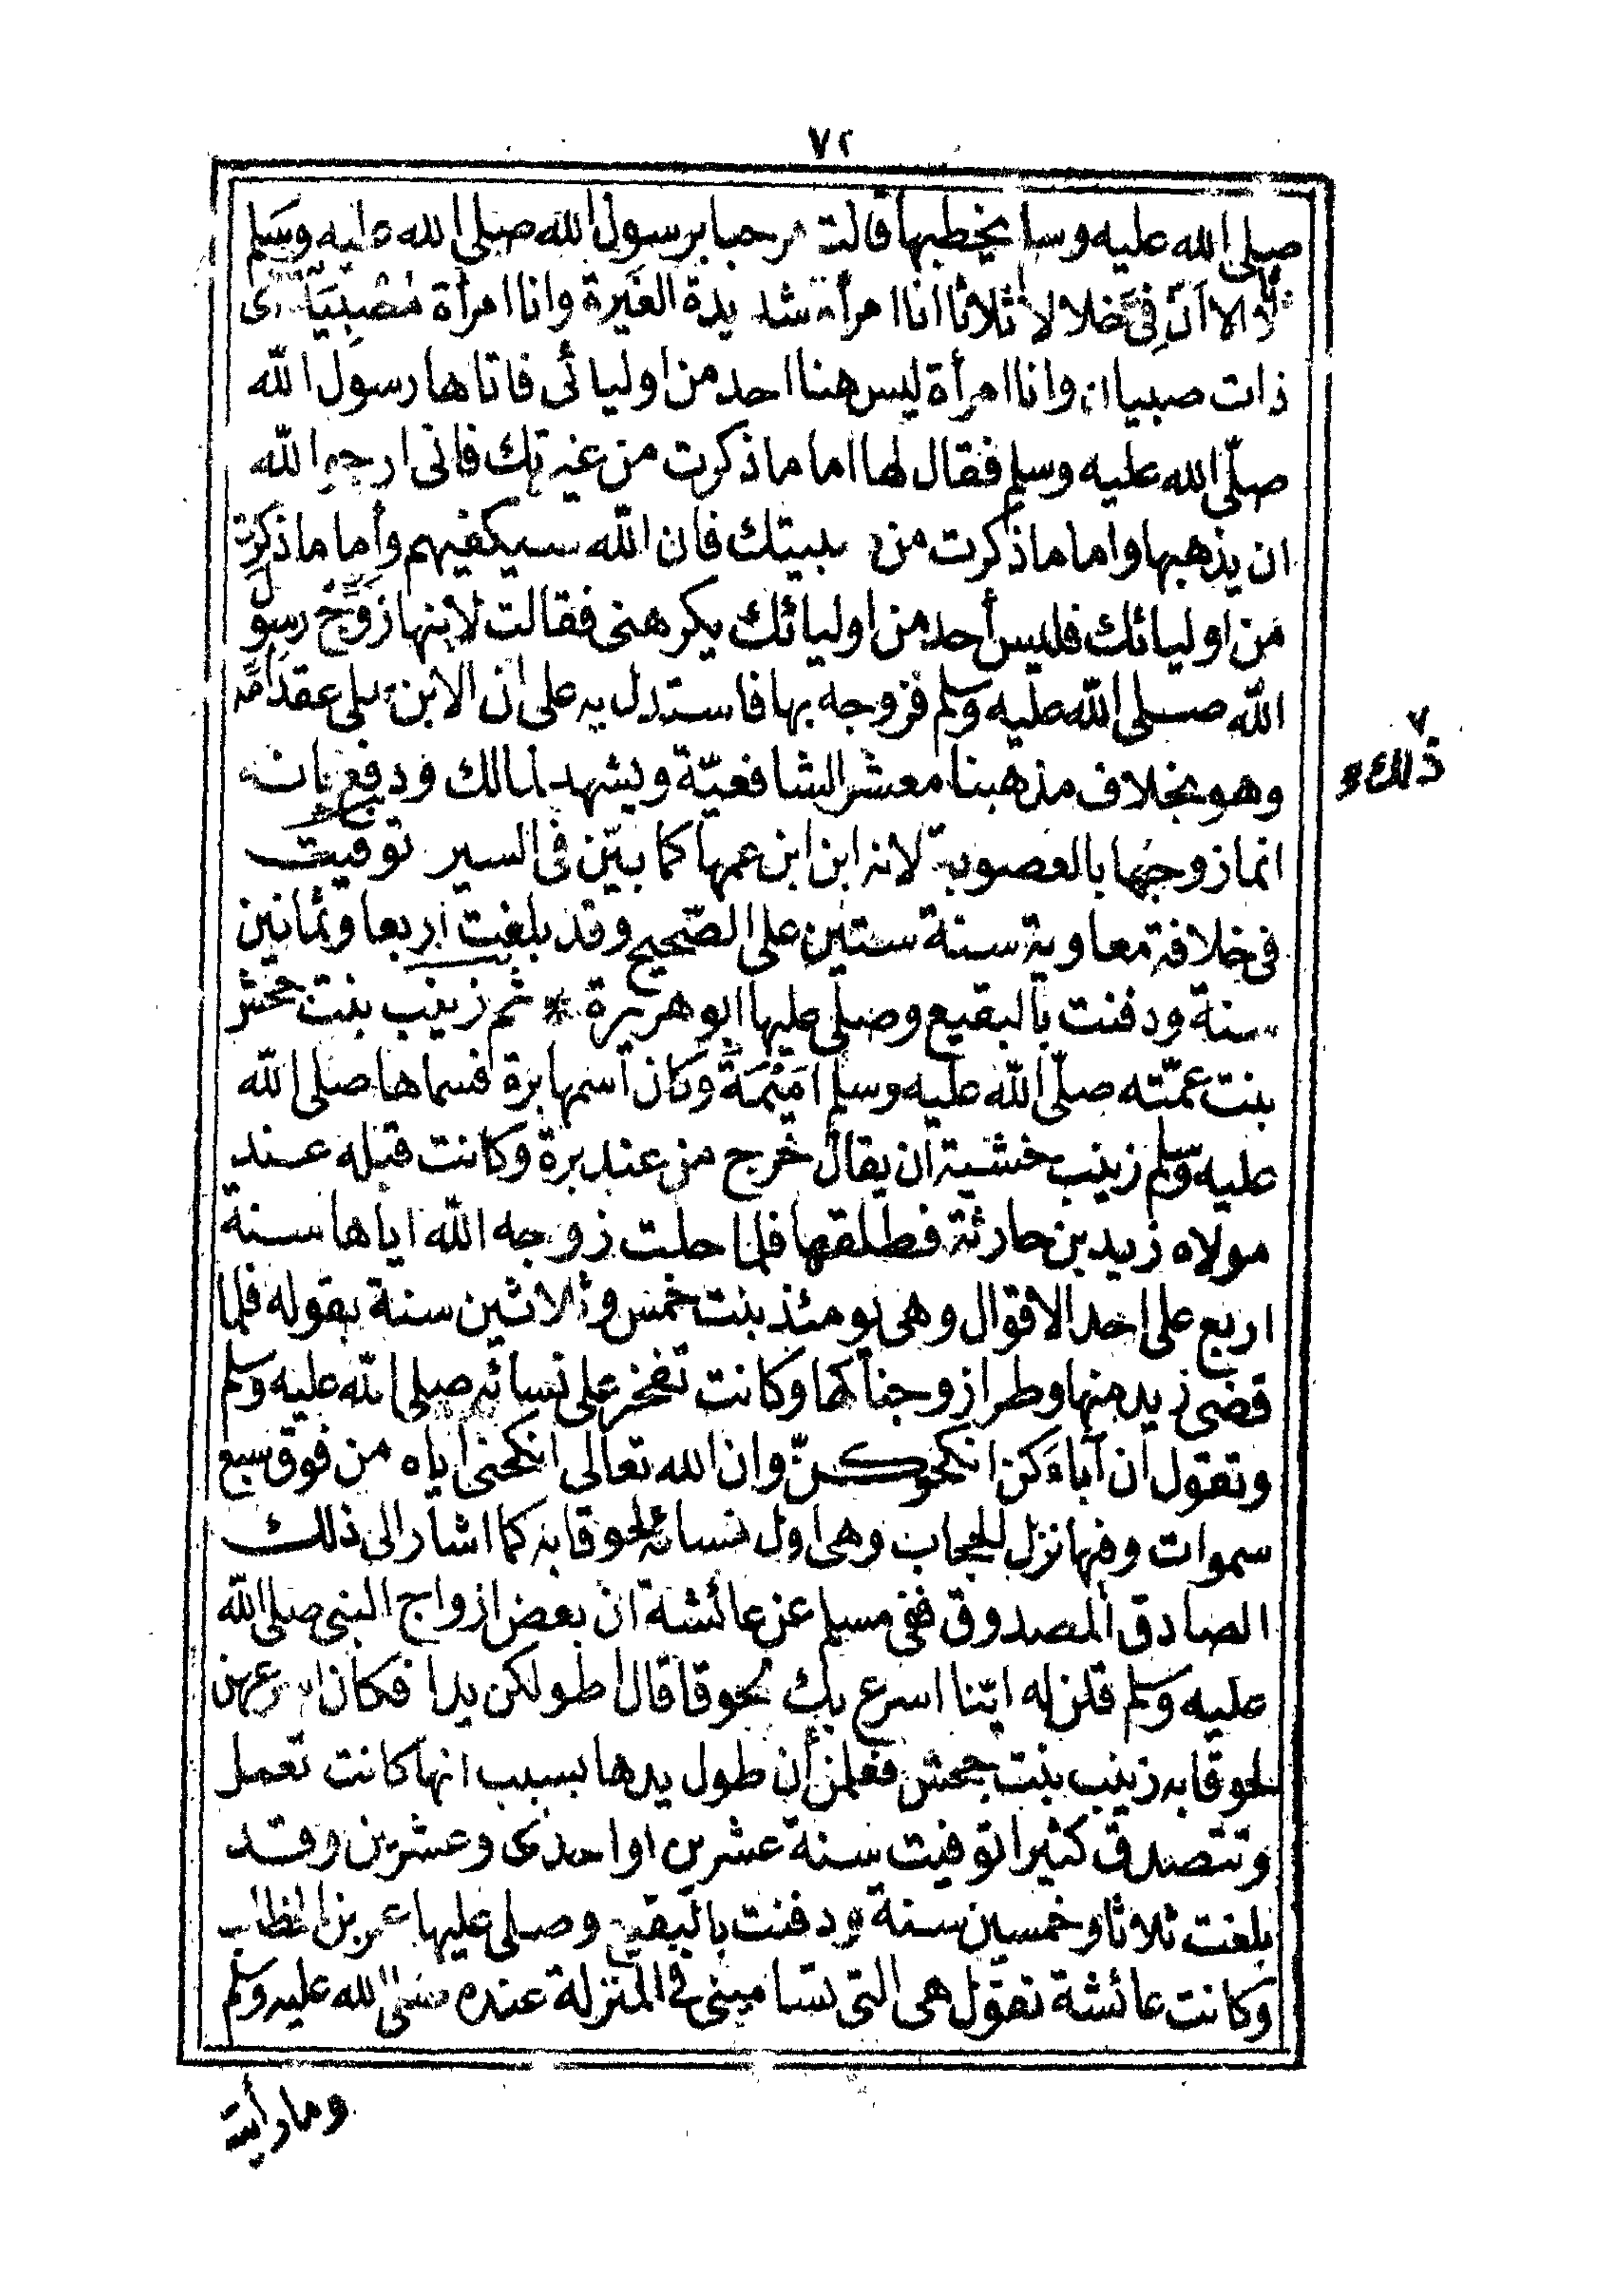 ٧٢
صلى الله عليه وسلم يخطبها قالت مرحبا برسول الله صلى الله عليه وسلم
الا ان فىّ خلالا ثلاثا انا امرأة شديدة الغَيرة وانا امرأة مُصْبِيَة اى
ذات صبيان وانا امرأة ليس هنا احد من اوليائى فاتاها رسول الله
صلّى الله عليه وسلم فقال لها اما ما ذكرت من غيرتك فانى ارجو الله
ان يذهبها واما ما ذكرت من صبيتك فان الله سيكفيهم وأما ما ذكرت
من اوليائك فليس أحد من اوليائك يكرهنى فقالت لابنها زوّج رسول
الله صلى الله عليه وسلم فزوجه بها فاستدل به على ان الابن يلى عقد امه
وهو بخلاف مذهبنا معشر الشافعيّة ويشهد لمالك ودفع بانه
ذلك
انما زوجها بالعصوبة لانه ابن ابن عمها كما بيّن فى السير توفيت
فى خلافة معاوية سنة ستين على الصّحيح وقد بلغت اربعا وثمانين
سنة ودفنت بالبقيع وصلى عليها ابو هريرة * ثم زينب بنت جحش
بنت عمّته صلّى الله عليه وسلم اُمَيْمَة وكان اسمها برة فسماها صلى الله
عليه وسلم زينب خشية ان يقال خرج من عند برة وكانت قبله عند
مولاه زيد بن حارثة فطلقها فلما حلت زوجه الله اياها سنة
اربع على احد الاقوال وهى يومئذ بنت خمس وثلاثين سنة بقوله فلما
قضى زيد منها وطرا زوجناكها وكانت تفخر على نسائه صلى الله عليه وسلم
وتقول ان آباءكن انكحوكنّ وان الله تعالى انكحنى اياه من فوق سبع
سموات وفيها نزل الحجاب وهى اول نسائه لحوقا به كما اشار الى ذلك
الصادق المصدوق ففى مسلم عن عائشة ان بعض ازواج النبى صلى الله
عليه وسلم قلن له ايّنا اسرع بك لحوقا قال اطولكن يدا فكان اسرعهن
لحوقا به زينب بنت جحش فعلمن أن طول يدها بسبب انها كانت تعمل
وتتصدق كثيرا توفيت سنة عشرين او احدى وعشرين وقد
بلغت ثلاثا وخمسين سنة ودفنت بالبقيع وصلى عليها عمر بن الخطاب
وكانت عائشة تقول هى التى تسامينى فى المنزلة عنده صلى الله عليه وسلم
وما رأيت